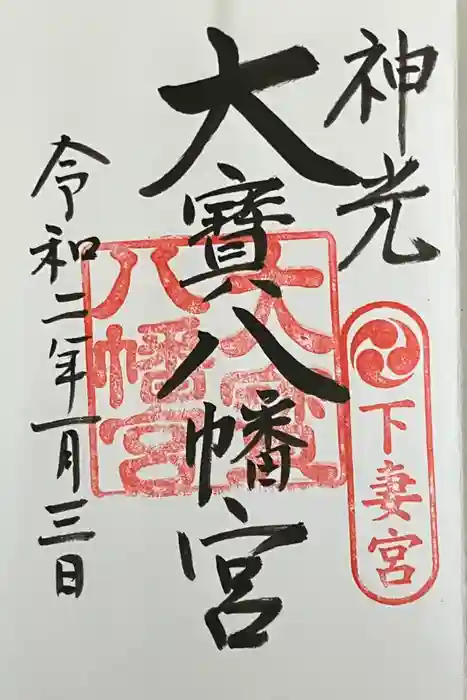 神光
下妻宮
大寶八幡宮
大宝八幡宮
令和二年一月三日